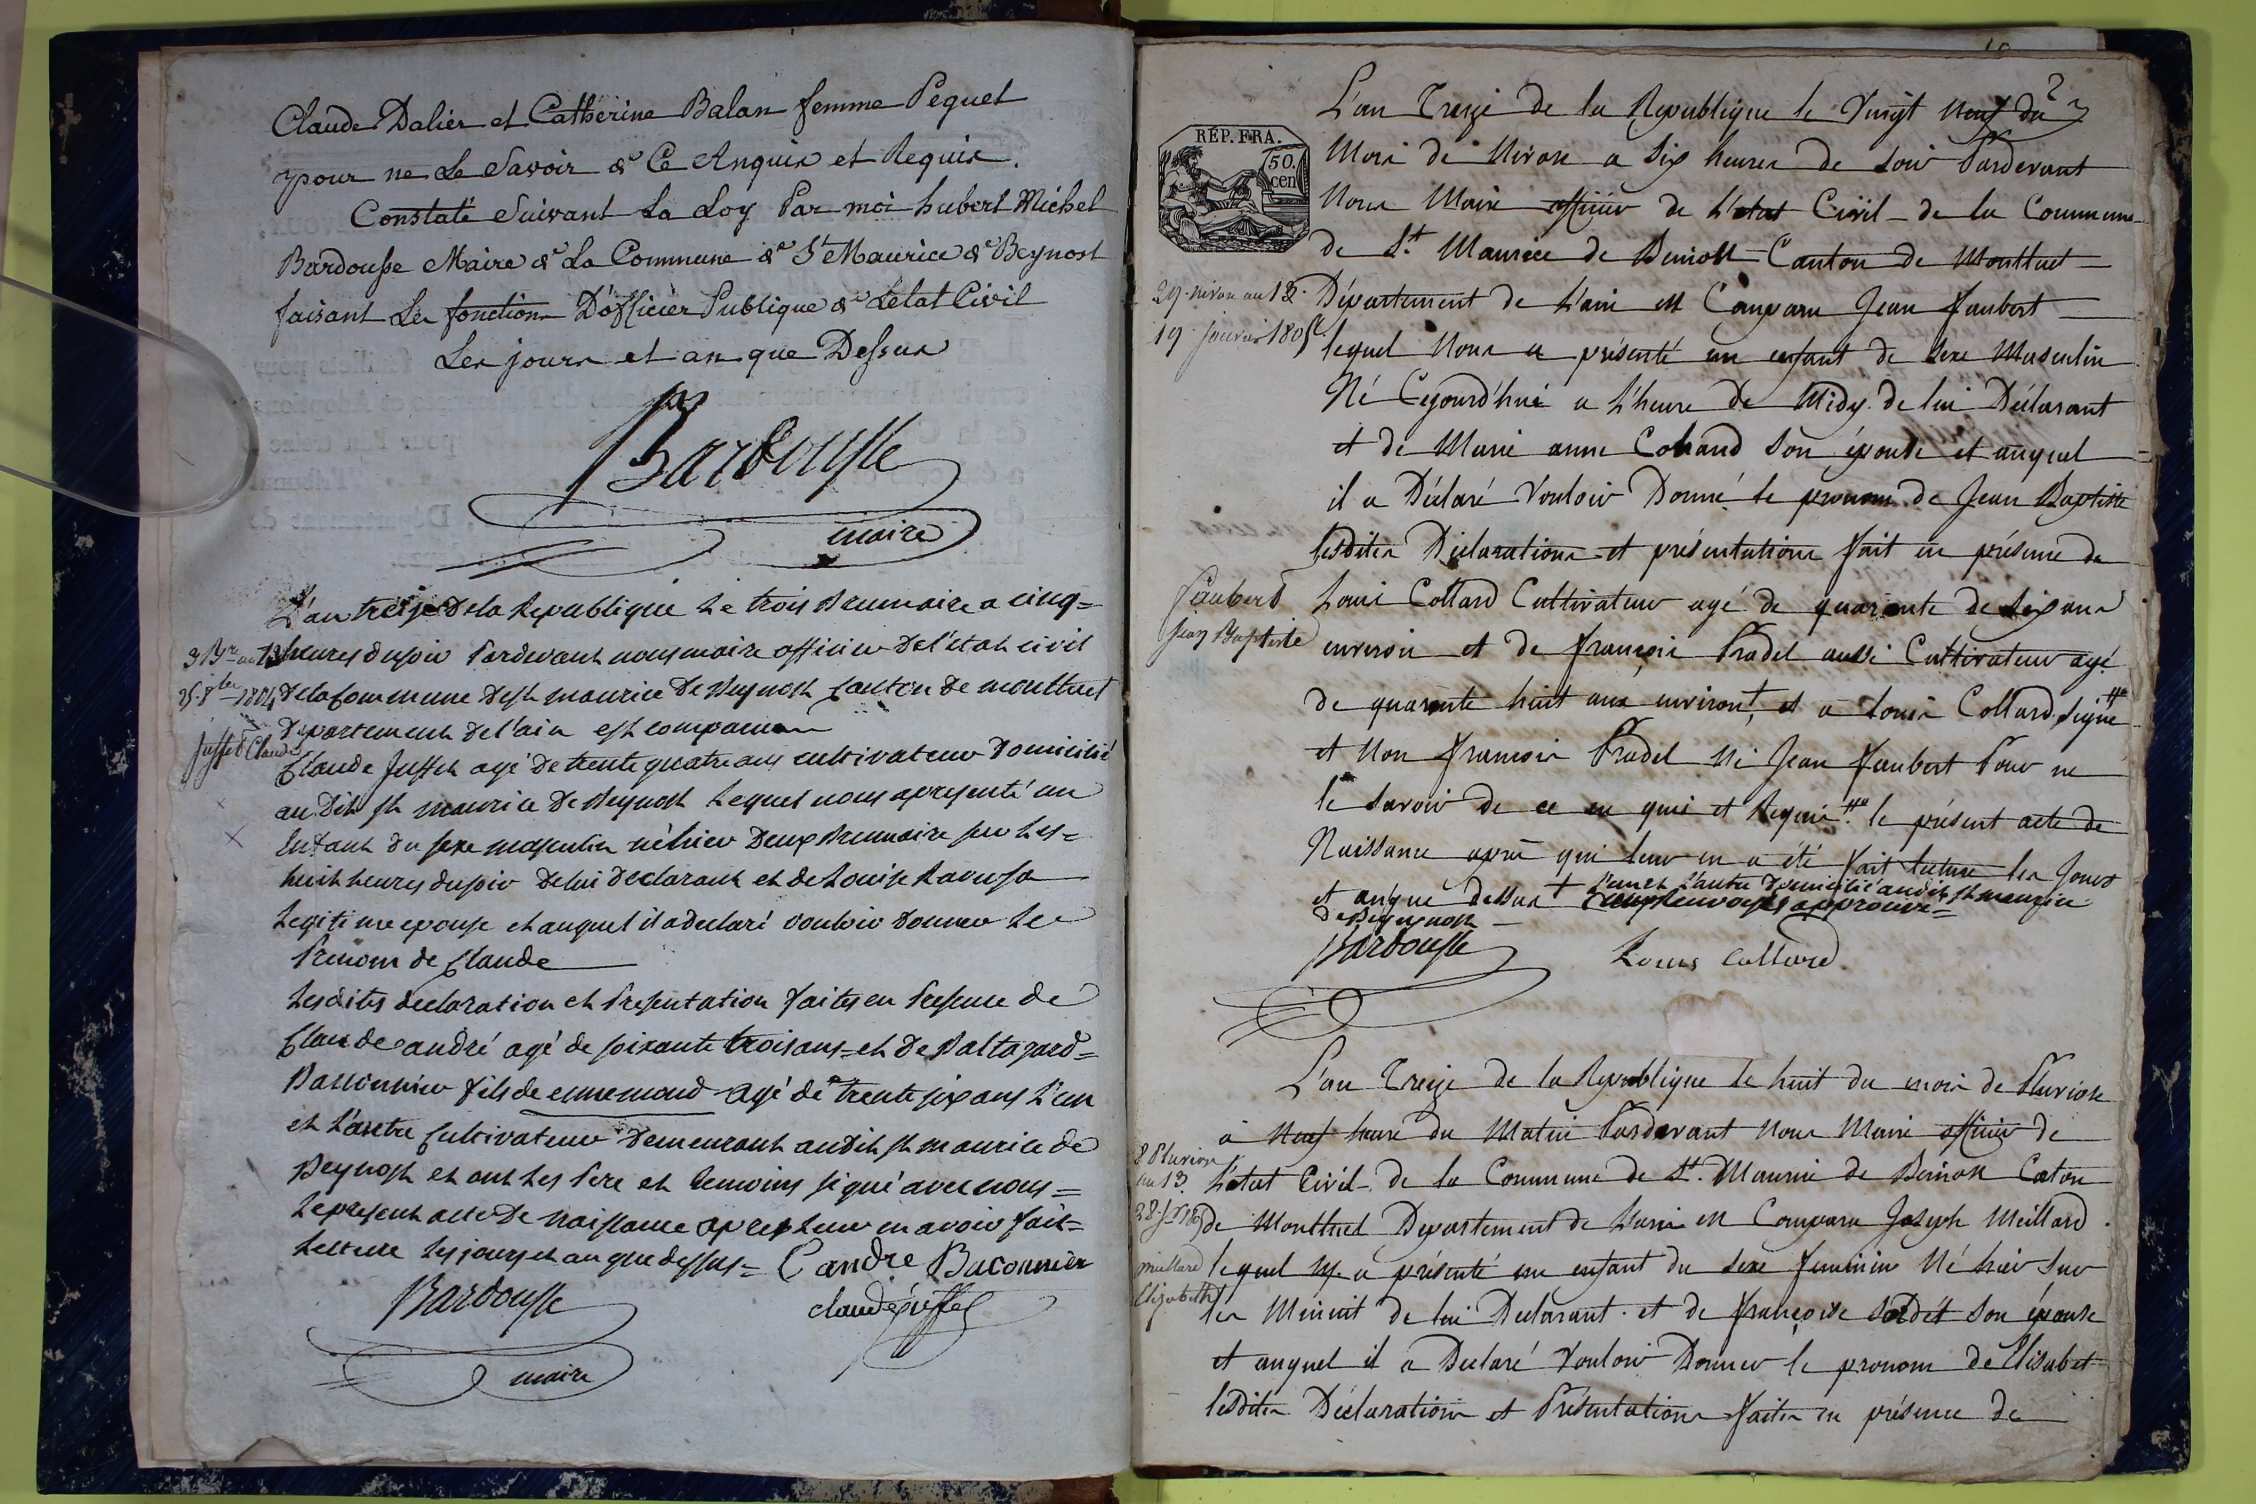 Claude Dalier et Catherine Balan femme Pequet
pour ne Le Savoir de Ce Anquis et Requis.
Constaté Suivant La Loy Par moi hubert Michel
Bardousse Maire de La Commune de St Maurice de Beynost
faisant Les fonction D'officier Publique de L'etat Civil
Les jours et an que Dessus
Bardousse
maire
L'an treize de la Republique Le trois Brumaire a cinq=
3 Bre an 13 heures du soir Pardevant nous maire officier De l'état civil
25 8bre 1804 De la Commune de St maurice De Beynost Canton De montluel
Departement de l'ain est comparu
Juffet Claude
Claude Juffet agé de trente quatre ans cultivateur Domicilié
au Dit St maurice De Beynost Lequel nous a presenté un
Enfant du sexe masculin né hier Deux Brumaire sur Les=
huit heures du soir De lui Declarant et de Louise
Legitime epouse et auquel il a declaré vouloir donner Le
Prenom de Claude
Lesdites declaration et Presentation faites en Presence de
Claude andré agé de soixante trois ans = et De Baltazard=
Baconnier fils de ennemond agé de trente six ans L'un
et L'autre Cultivateur Demeurant audit St maurice de
Beynost et ont Les Pere et temoins signé avec nous=
Le present acte De naissance apres Leur en avoir fait=
Lecture Les jours et an que dessus= C andre Baconnier
Bardousse claude juffet
maire
L'an Treize de la Republique le Vingt Neuf du
RÉP. FRA.
50.
cen
Mois de Nivose a Six heures de Soir Pardevant
Nous Maire officier de L'etat Civil de la Commune
de St. Maurice de Beinost Canton de Montluel
29. nivose an 13. Département de L'ain est Comparu Jean Faubert
19 janvier 1805 lequel Nous a présenté un enfant de Sexe Masculin
Né Cejourd'hui a L'heure De Midy de lui Déclarant
et de Marie anne Coband Son épouse et auquel
il a Déclaré Vouloir Donné le pronom de Jean Baptiste
lesdites Déclarations et présentations fait en présence de
Faubert Louis Collard Cultivateur agé de quarante de Six ans
Jean Baptiste environ et de François Pradel aussi Cultivateur agé
de quarante huit ans environ †, et a Louis Collard Signé
et Non François Pradel Ni Jean Faubert Pour ne
le Savoir de ce en quis et Requis. le présent acte de
Naissance après qui leur en a été fait lecture les Jours
et an que dessus † L'un et L'autre Domicilié audit St maurice
De Beynost
Bardousse Louis Collard
L'an Treize de la Republique le huit du mois de Pluviose
à Neuf heure du Matin Pardevant Nous Maire officier de
8 Pluviose
an 13. L'état Civil de la Commune de St. Maurice de Beinost Caton
de Montluel Departement de L'ain est Comparu Joseph Meillard
millard lequel N. a présenté un enfant du Sexe feminin Né hier Sur
Elizabeth les Minuit de lui Declarant et de Françoise Son épouse
et auquel il a Declaré Vouloir Donner le pronom de Elisabet
lesdites Déclaration et Présentations faites en présence de